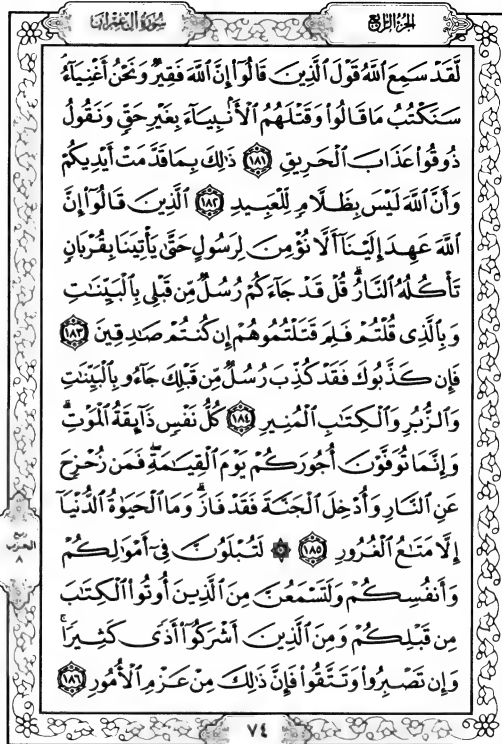 سُورَةُ آلِ عِمْرَان
الجزء الرابع
لَّقَدْ سَمِعَ اللَّهُ قَوْلَ الَّذِينَ قَالُوا إِنَّ اللَّهَ فَقِيرٌ وَنَحْنُ أَغْنِيَاءُ
سَنَكْتُبُ مَا قَالُوا وَقَتْلَهُمُ الْأَنبِيَاءَ بِغَيْرِ حَقٍّ وَنَقُولُ
ذُوقُوا عَذَابَ الْحَرِيقِ ١٨١ ذَٰلِكَ بِمَا قَدَّمَتْ أَيْدِيكُمْ
وَأَنَّ اللَّهَ لَيْسَ بِظَلَّامٍ لِّلْعَبِيدِ ١٨٢ الَّذِينَ قَالُوا إِنَّ
اللَّهَ عَهِدَ إِلَيْنَا أَلَّا نُؤْمِنَ لِرَسُولٍ حَتَّىٰ يَأْتِيَنَا بِقُرْبَانٍ
تَأْكُلُهُ النَّارُ ۗ قُلْ قَدْ جَاءَكُمْ رُسُلٌ مِّن قَبْلِي بِالْبَيِّنَاتِ
وَبِالَّذِي قُلْتُمْ فَلِمَ قَتَلْتُمُوهُمْ إِن كُنتُمْ صَادِقِينَ ١٨٣
فَإِن كَذَّبُوكَ فَقَدْ كُذِّبَ رُسُلٌ مِّن قَبْلِكَ جَاءُو بِالْبَيِّنَاتِ
وَالزُّبُرِ وَالْكِتَابِ الْمُنِيرِ ١٨٤ كُلُّ نَفْسٍ ذَائِقَةُ الْمَوْتِ ۗ
وَإِنَّمَا تُوَفَّوْنَ أُجُورَكُمْ يَوْمَ الْقِيَامَةِ ۖ فَمَن زُحْزِحَ
عَنِ النَّارِ وَأُدْخِلَ الْجَنَّةَ فَقَدْ فَازَ ۗ وَمَا الْحَيَوٰةُ الدُّنْيَا
إِلَّا مَتَاعُ الْغُرُورِ ١٨٥ ۞ لَتُبْلَوُنَّ فِي أَمْوَالِكُمْ
وَأَنفُسِكُمْ وَلَتَسْمَعُنَّ مِنَ الَّذِينَ أُوتُوا الْكِتَابَ
مِن قَبْلِكُمْ وَمِنَ الَّذِينَ أَشْرَكُوا أَذًى كَثِيرًا ۚ
وَإِن تَصْبِرُوا وَتَتَّقُوا فَإِنَّ ذَٰلِكَ مِنْ عَزْمِ الْأُمُورِ ١٨٦
ربع
الحزب
٨
٧٤